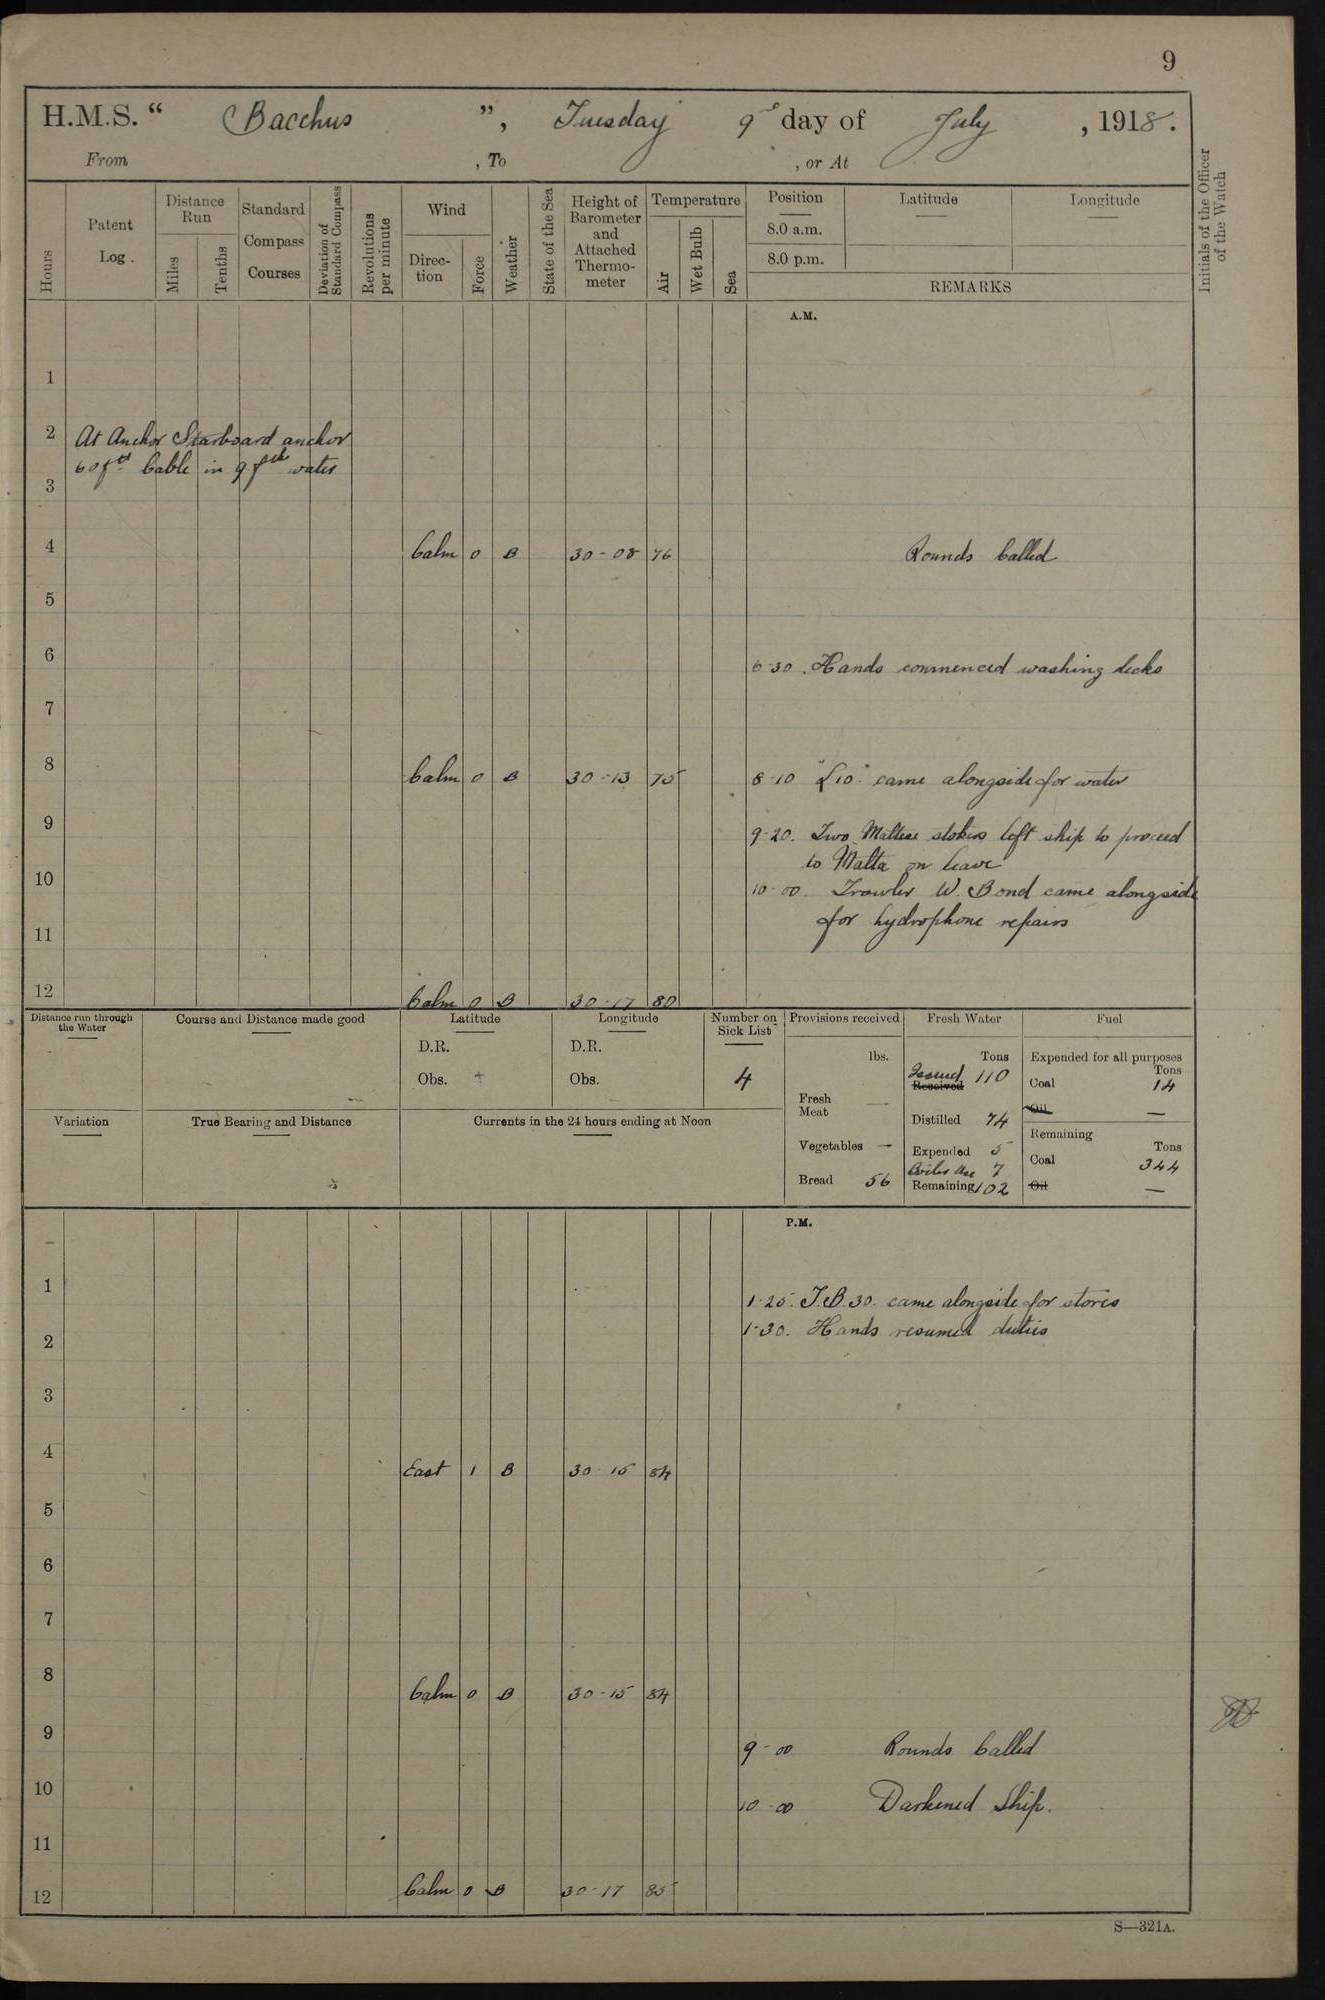 9
H.M.S. “ Bacchus ”, Tuesday 9th day of July , 1918.
From , To , or At
Hours
Patent Log.
Distance Run
Miles
Tenths
Standard Compass Courses
Deviation of Standard Compass
Revolutions per minute
Wind
Direction
Force
Weather
State of the Sea
Height of Barometer and Attached Thermometer
Temperature
Air
Wet Bulb
Sea
Position
8.0 a.m.
8.0 p.m.
Latitude
Longitude
REMARKS
Initials of the Officer of the Watch
A.M.
1
2 At Anchor Starboard anchor
60 fth Cable in 9 fth water
3
4 Calm 0 B 30-08 76 Rounds Called
5
6
6-30. Hands commenced washing decks
7
8 Calm 0 B 30-13 75 8-10 "£10" came alongside for water
9 9-20. Two Maltese stokers left ship to proceed
to Malta on leave
10 10-00. Trawler W. Bond came alongside
for hydrophone repairs
11
12 Calm 0 B 30-17 80
Distance run through the Water
Course and Distance made good
Latitude
D.R.
Obs.
Longitude
D.R.
Obs.
Number on Sick List
4
Provisions received
lbs.
Fresh Meat —
Vegetables —
Bread 56
Fresh Water
Tons
Issued 110
Received
Distilled 74
Expended 5
Boiler Use 7
Remaining 102
Fuel
Expended for all purposes
Tons
Coal 14
Oil —
Remaining
Tons
Coal 344
Oil —
Variation
True Bearing and Distance
Currents in the 24 hours ending at Noon
P.M.
1
1-25. T.B. 30. came alongside for stores
1-30. Hands resumed duties
2
3
4
East 1 B 30-15 84
5
6
7
8
Calm 0 B 30-15 84
9
9-00 Rounds Called
10
10-00 Darkened Ship.
11
12 Calm 0 B 30-17 85
S—321A.